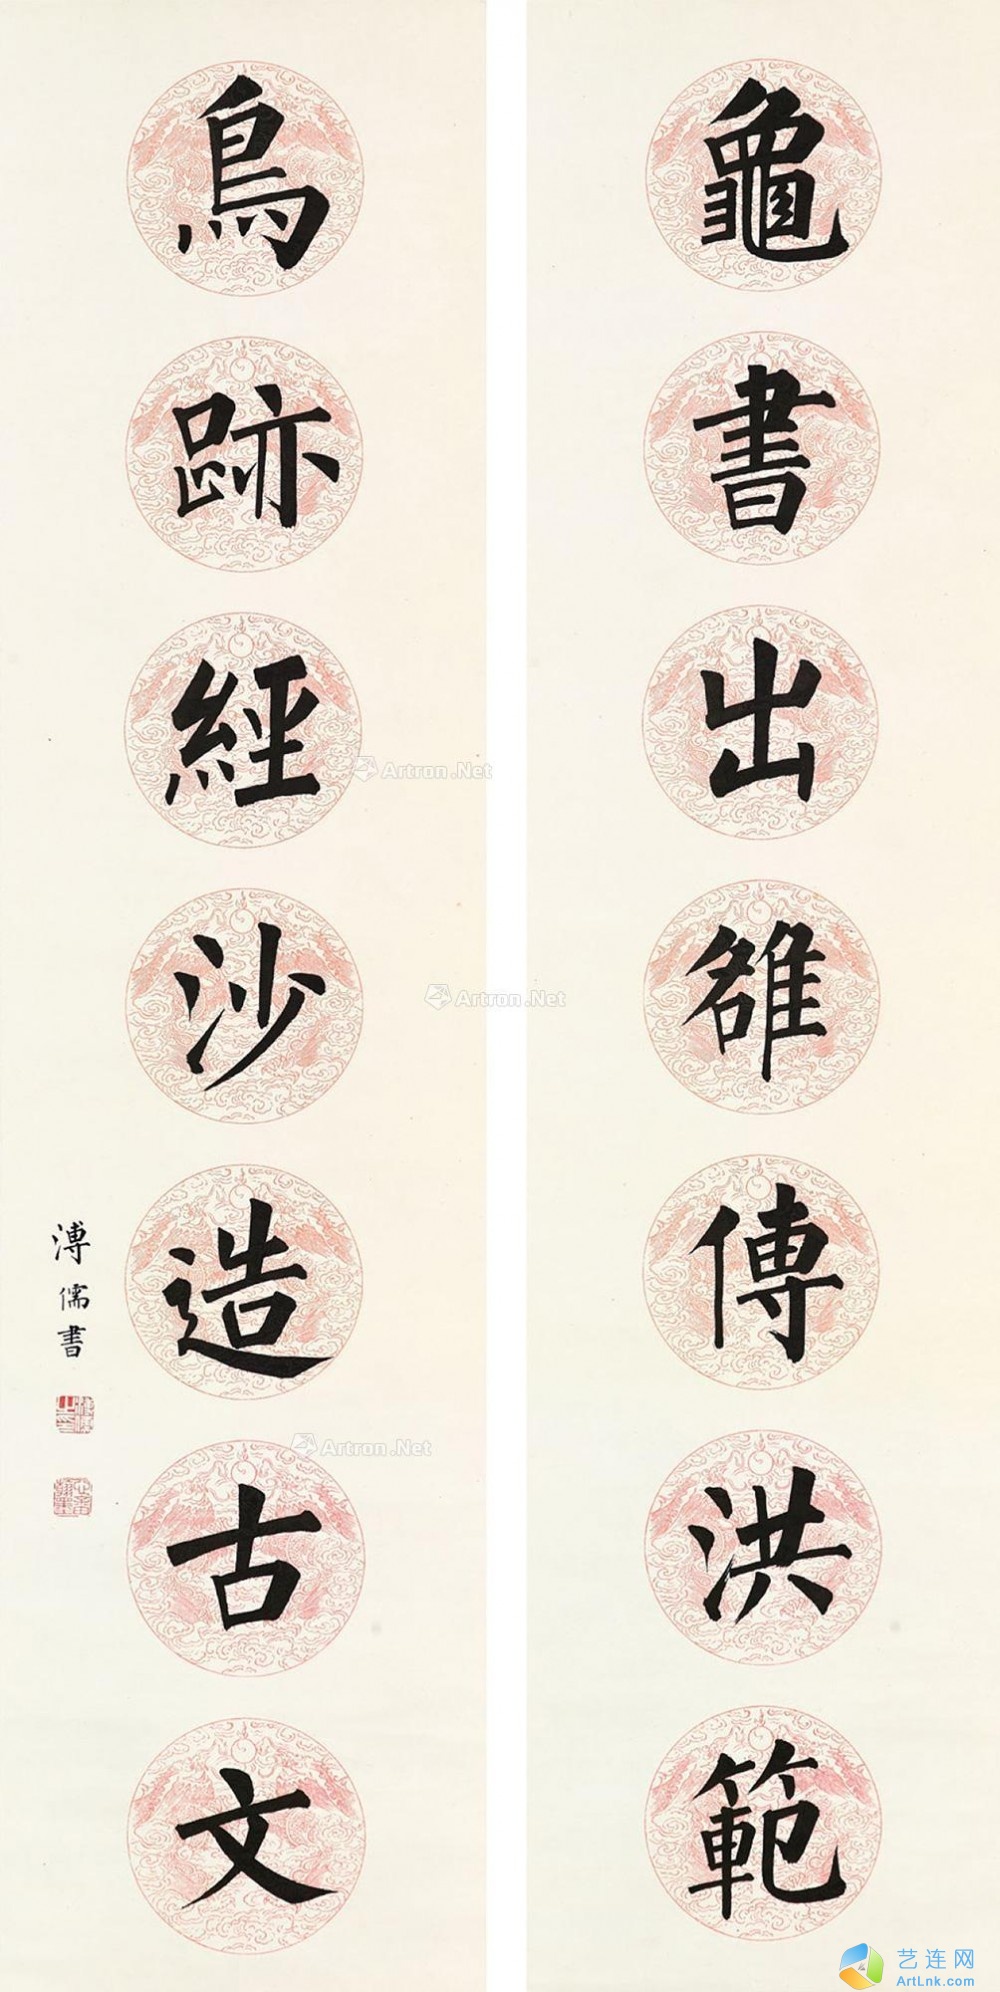 龜書出雒傳洪範
鳥跡經沙造古文
溥儒書
Artron.Net
Artron.Net
Artron.Net
艺连网
ArtLnk.com